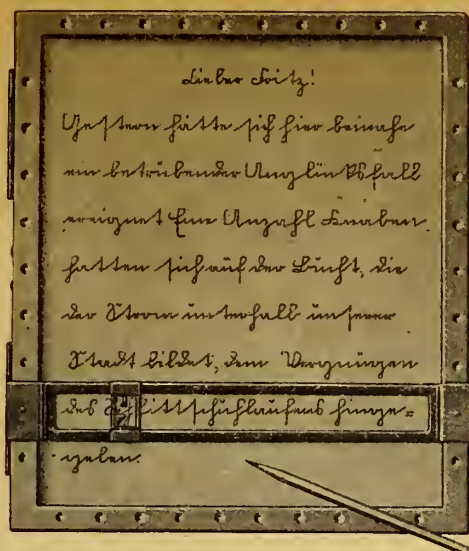 Lieber Fritz!
Gestern hätte sich hier beinahe
ein betrübender Unglücksfall
ereignet Eine Anzahl Knaben
hatten sich auf der Bucht, die
der Strom unterhalb unserer
Stadt bildet, dem Vergnügen
des Schlittschuhlaufens hinge=
geben.